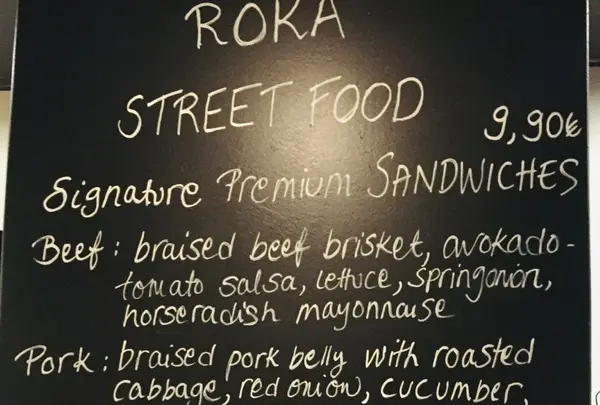 ROKA
STREET FOOD
9,90€
Signature Premium SANDWICHES
Beef: braised beef brisket, avokado-
tomato salsa, lettuce, springonion,
horseradish mayonnaise
Pork: braised pork belly with roasted
cabbage, red onion, cucumber,